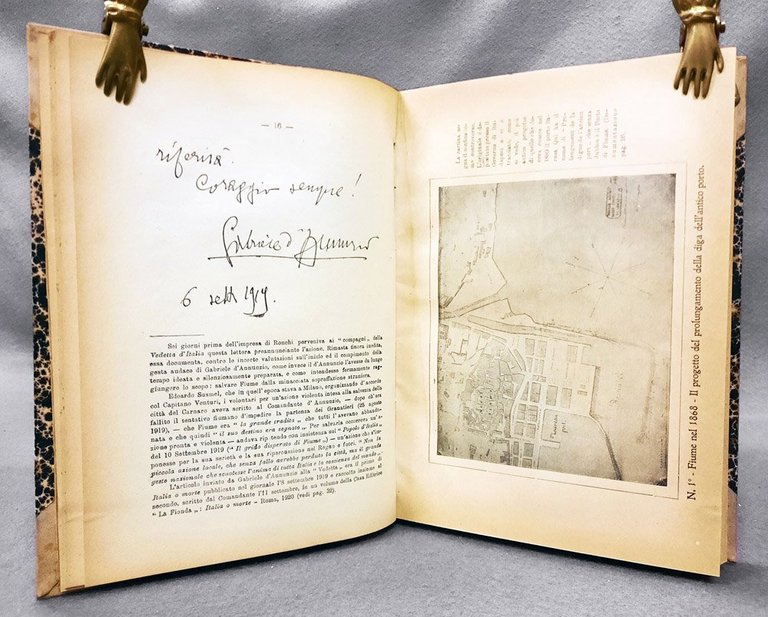 — 16 —
riferirà.
Coraggio sempre!
Gabriele d'Annunzio
6 sett. 1919.
Sei giorni prima dell'impresa di Ronchi perveniva ai " compagni „ della
Vedetta d'Italia questa lettera preannunciante l'azione. Rimasta finora inedita,
essa documenta, contro le incerte valutazioni sull'inizio ed il compimento della
gesta audace di Gabriele d'Annunzio, come invece il d'Annunzio l'avesse da lungo
tempo ideata e silenziosamente preparata, e come intendesse formalmente rag-
giungere lo scopo: salvare Fiume dalla minacciata sopraffazione straniera.
Edoardo Susmel, che in quell'epoca stava a Milano, organizzando d'accordo
col Capitano Venturi, i volontari per un'azione violenta intesa alla salvezza della
città del Carnaro aveva scritto al Comandante d'Annunzio, — dopo ch'era
fallito il tentativo fiumano d'impedire la partenza dei Granatieri (25 agosto
1919), — che Fiume era " la grande tradita „ che tutti l'avevano abbando-
nata e che quindi " il suo destino era segnato „. Per salvarla occorreva un'a-
zione pronta e violenta — andava ripetendo con insistenza sul " Popolo d'Italia „
del 10 Settembre 1919 (" Il grido disperato di Fiume „) — un'azione che s'im-
ponesse per la sua serietà e la sua ripercussione nel Regno e fuori. " Non la
piccola azione locale, che senza fallo avrebbe perduto la città, ma il grande
gesto nazionale che scuotesse l'anima di tutta Italia e la coscienza del mondo „.
L'articolo inviato da Gabriele d'Annunzio alla " Vedetta „ era il primo di
Italia o morte pubblicato nel giornale l'8 settembre 1919 e raccolto insieme al
secondo, scritto dal Comandante l'11 settembre, in un volume della Casa Editrice
" La Fionda „: Italia o morte - Roma, 1920 (vedi pag. 32).
N. 1° - Fiume nel 1868 - Il progetto del prolungamento della diga dell'antico porto.